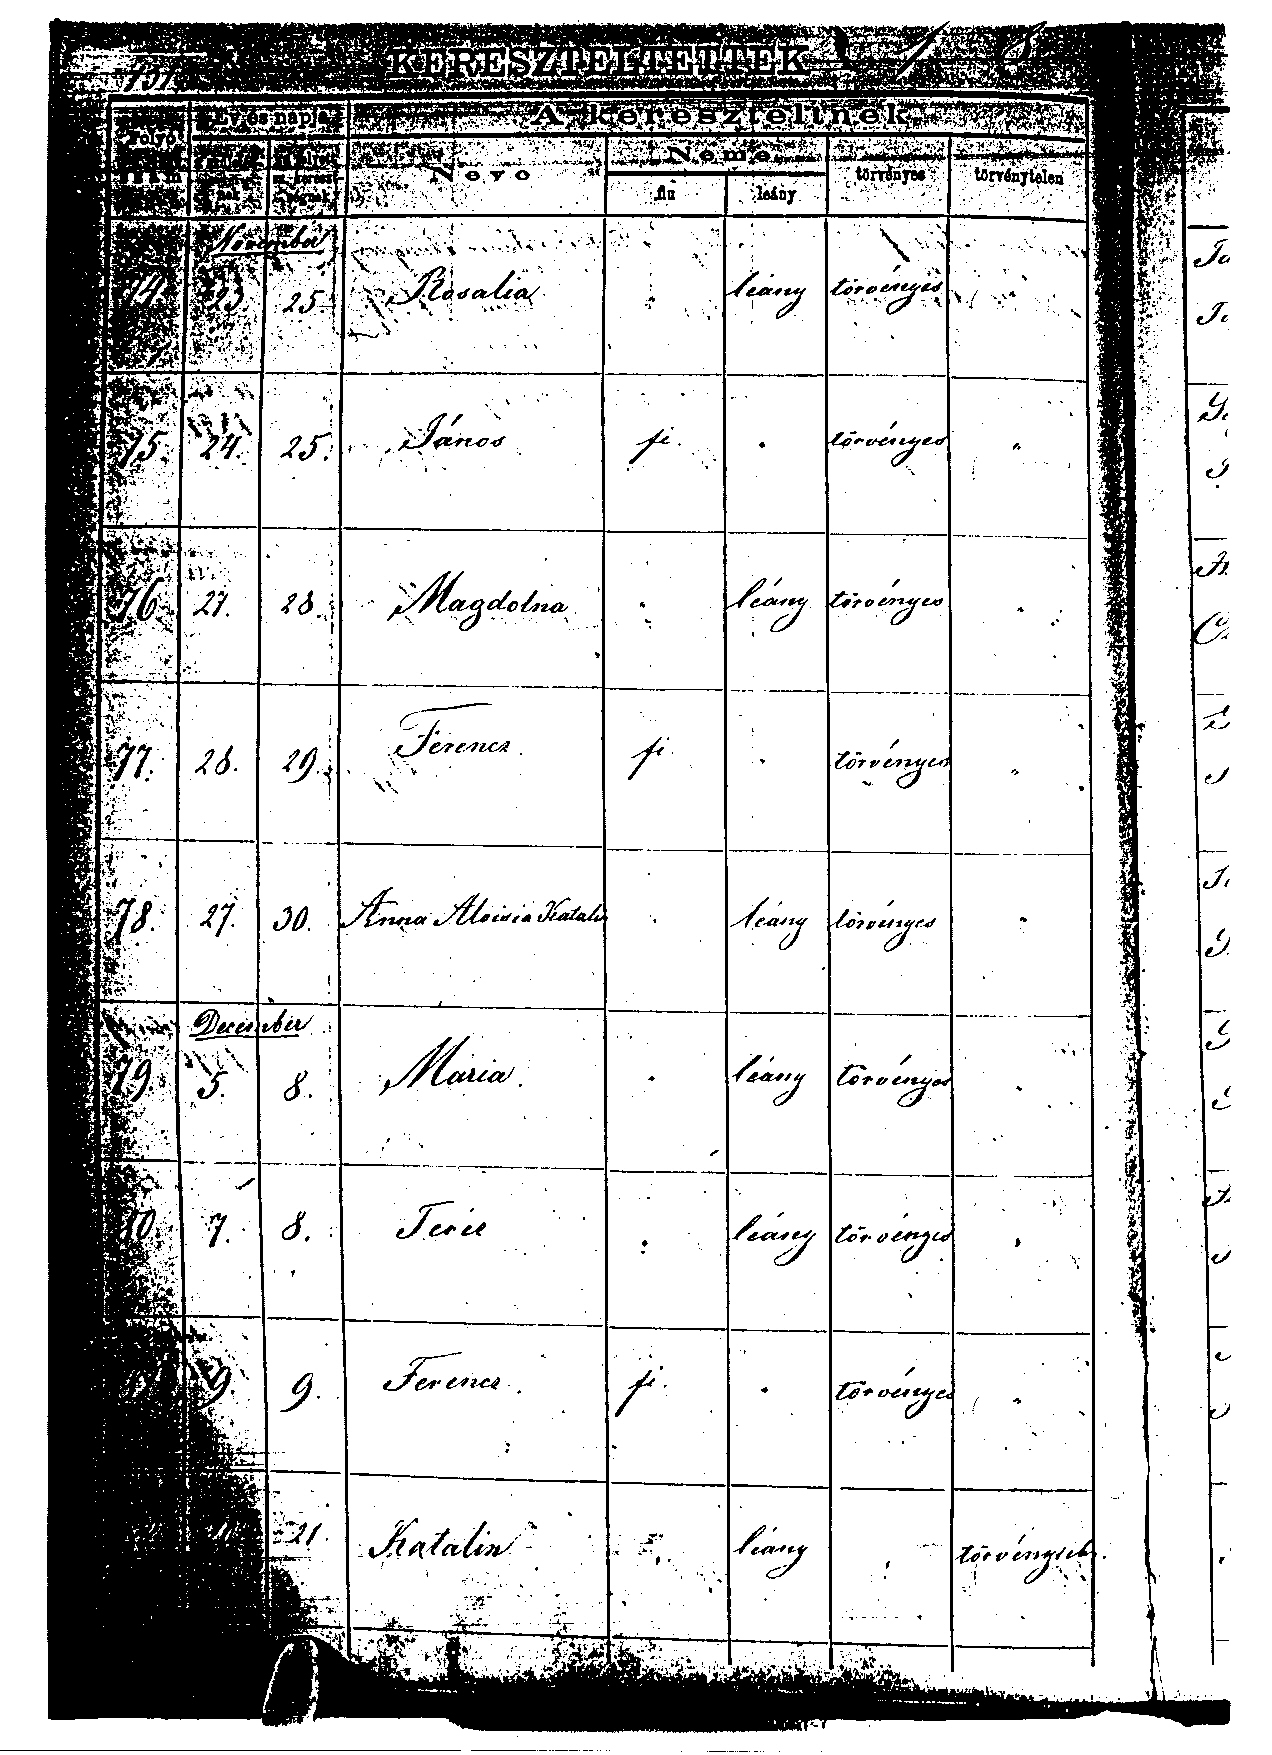 KERESZTELTETTEK
Folyó
Év és napja
A kereszteltnek
Neve
Neme
fiu
leány
törvényes
törvénytelen
November
74. 23 25. Rosalia leány törvényes
75. 24. 25. János fi. törvényes "
76. 27. 28. Magdolna leány törvényes "
77. 28. 29. Ferencz fi törvényes "
78. 27. 30. Anna Aloisia Katalin leány törvényes "
December
79. 5. 8. Mária leány törvényes
80. 7. 8. Teréz leány törvényes
9. 9. Ferencz fi. törvényes "
21. Katalin leány